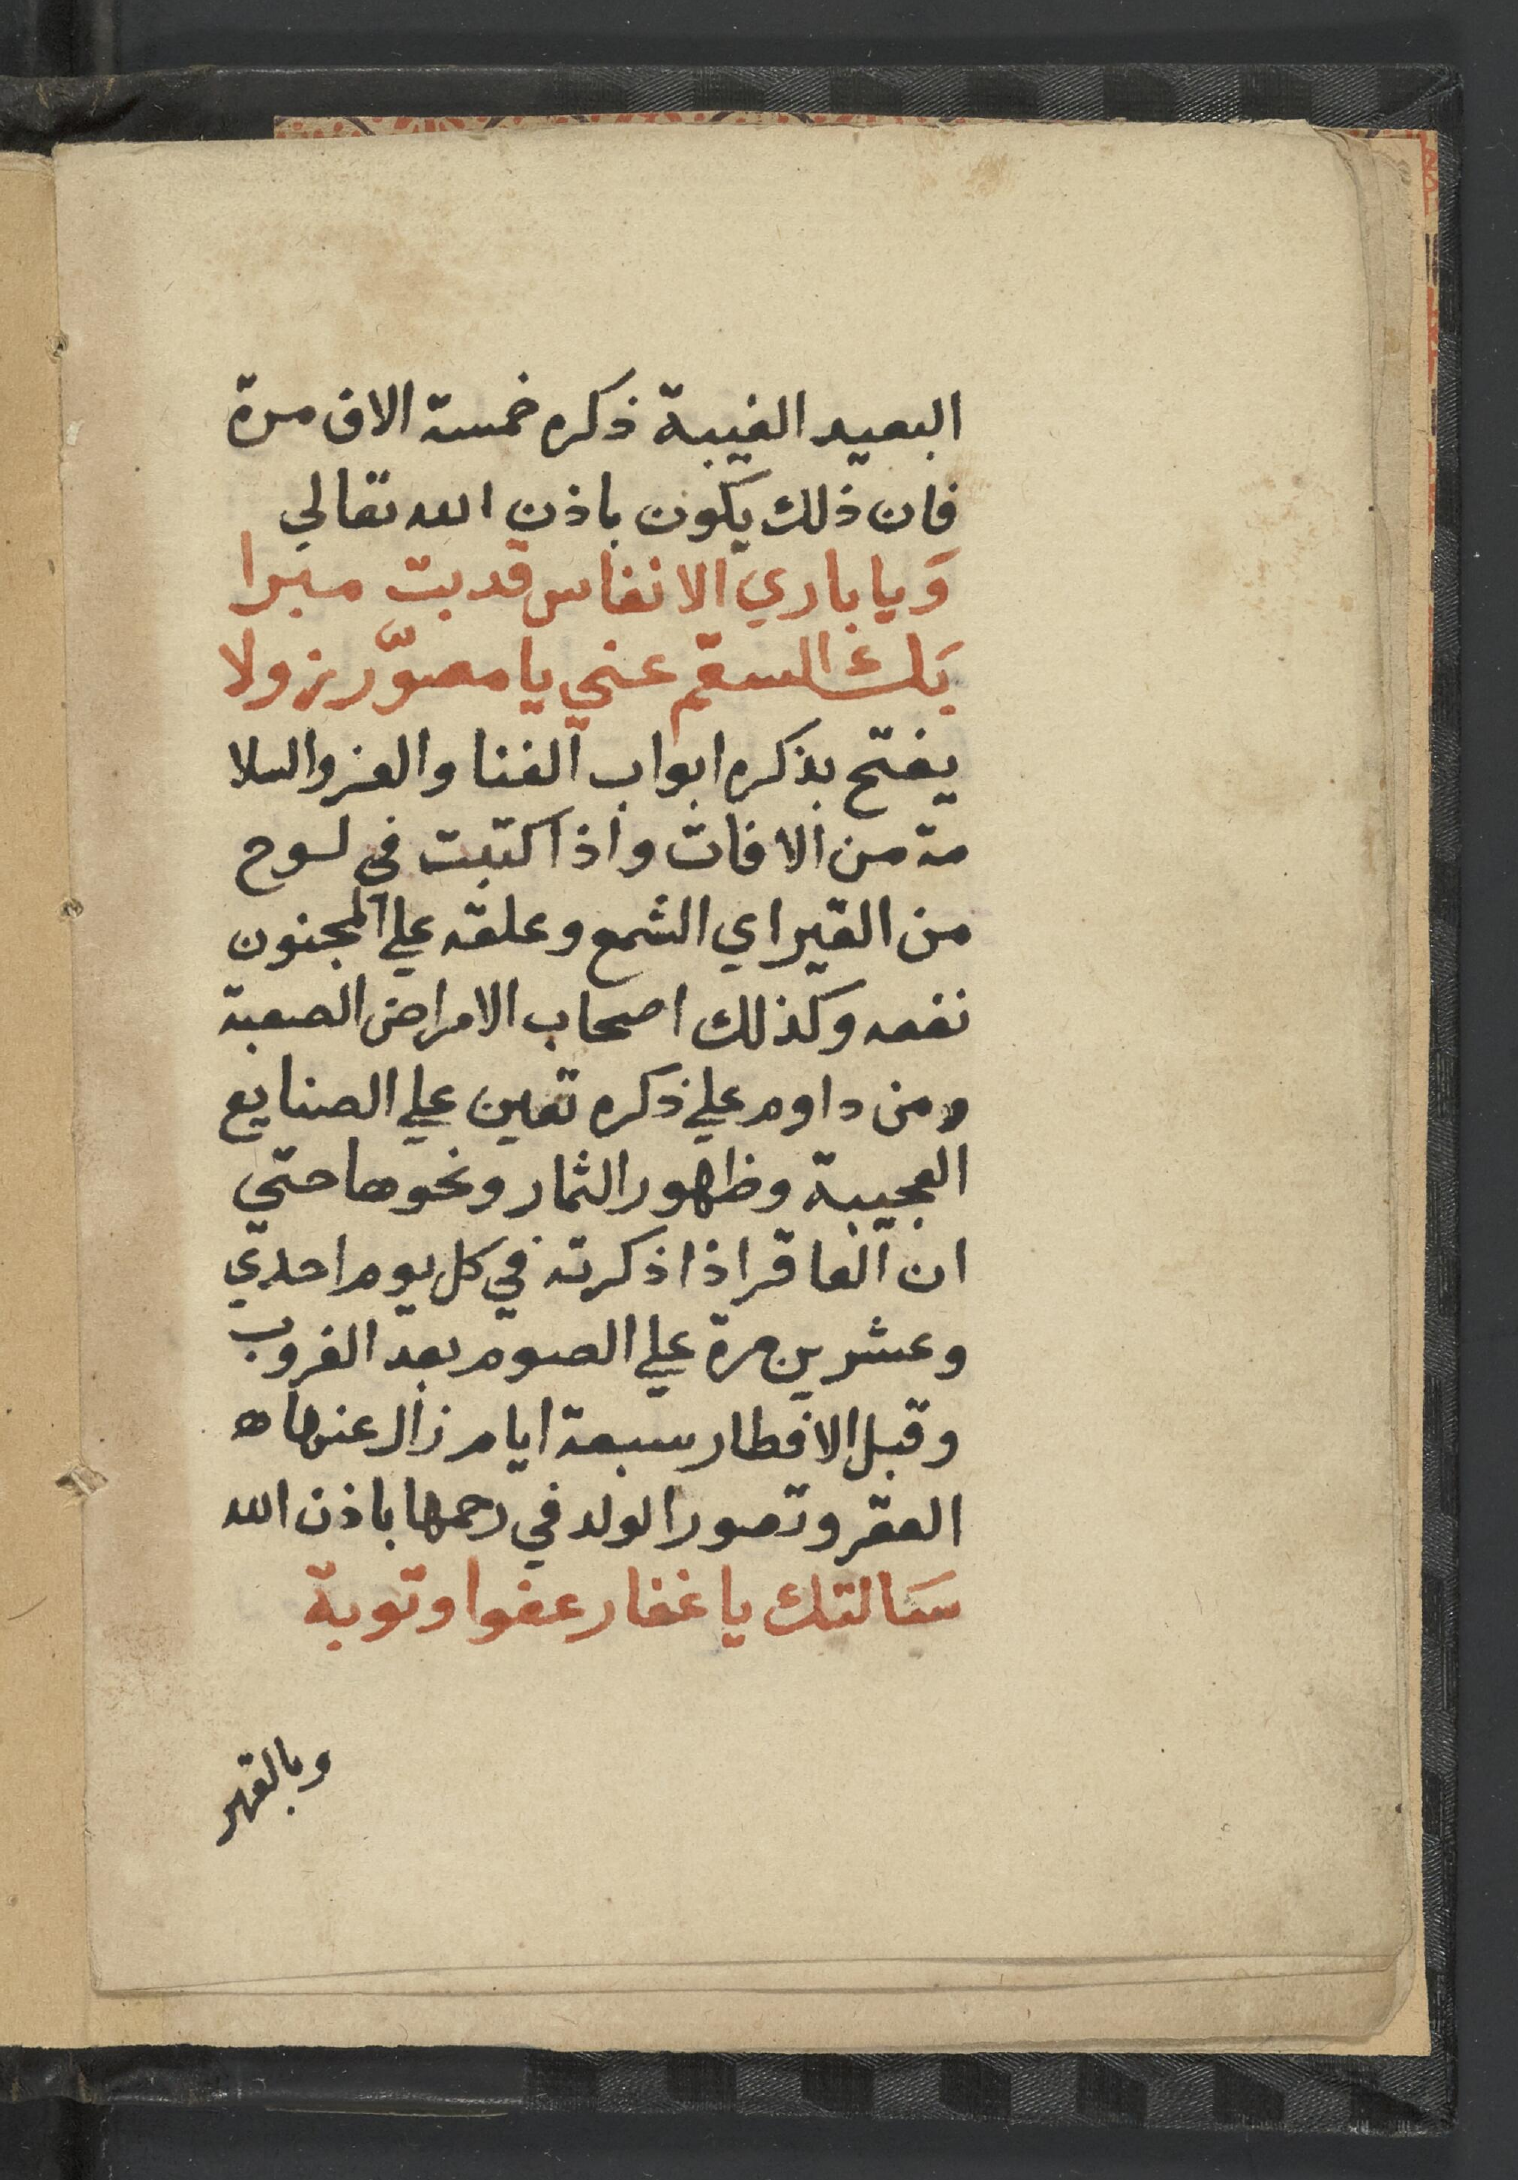 البعيد الغيبة ذكره خمسة الاف مرة
فان ذلك يكون باذن الله تعالي
وَيا باري الانفاس قد بت مبرا
بَك السقم عني يا مصوّر زولا
يفتح بذكره ابواب الغنا والعز والسلا
مة من الافات واذا كتبت في لوح
من القير اي الشمع وعلقه علي المجنون
نفعه وكذلك اصحاب الامراض الصعبة
ومن داوم علي ذكره تعين علي الصنايع
العجيبة وظهور الثمار ونحوها حتي
ان العاقر اذا ذكرته في كل يوم احدي
وعشرين مرة علي الصوم بعد الغروب
وقبل الافطار سبعة ايام زال عنها ه
العقر وتصور الولد في رحمها باذن الله
سَالتك يا غفار عفوا وتوبة
وبالقهر